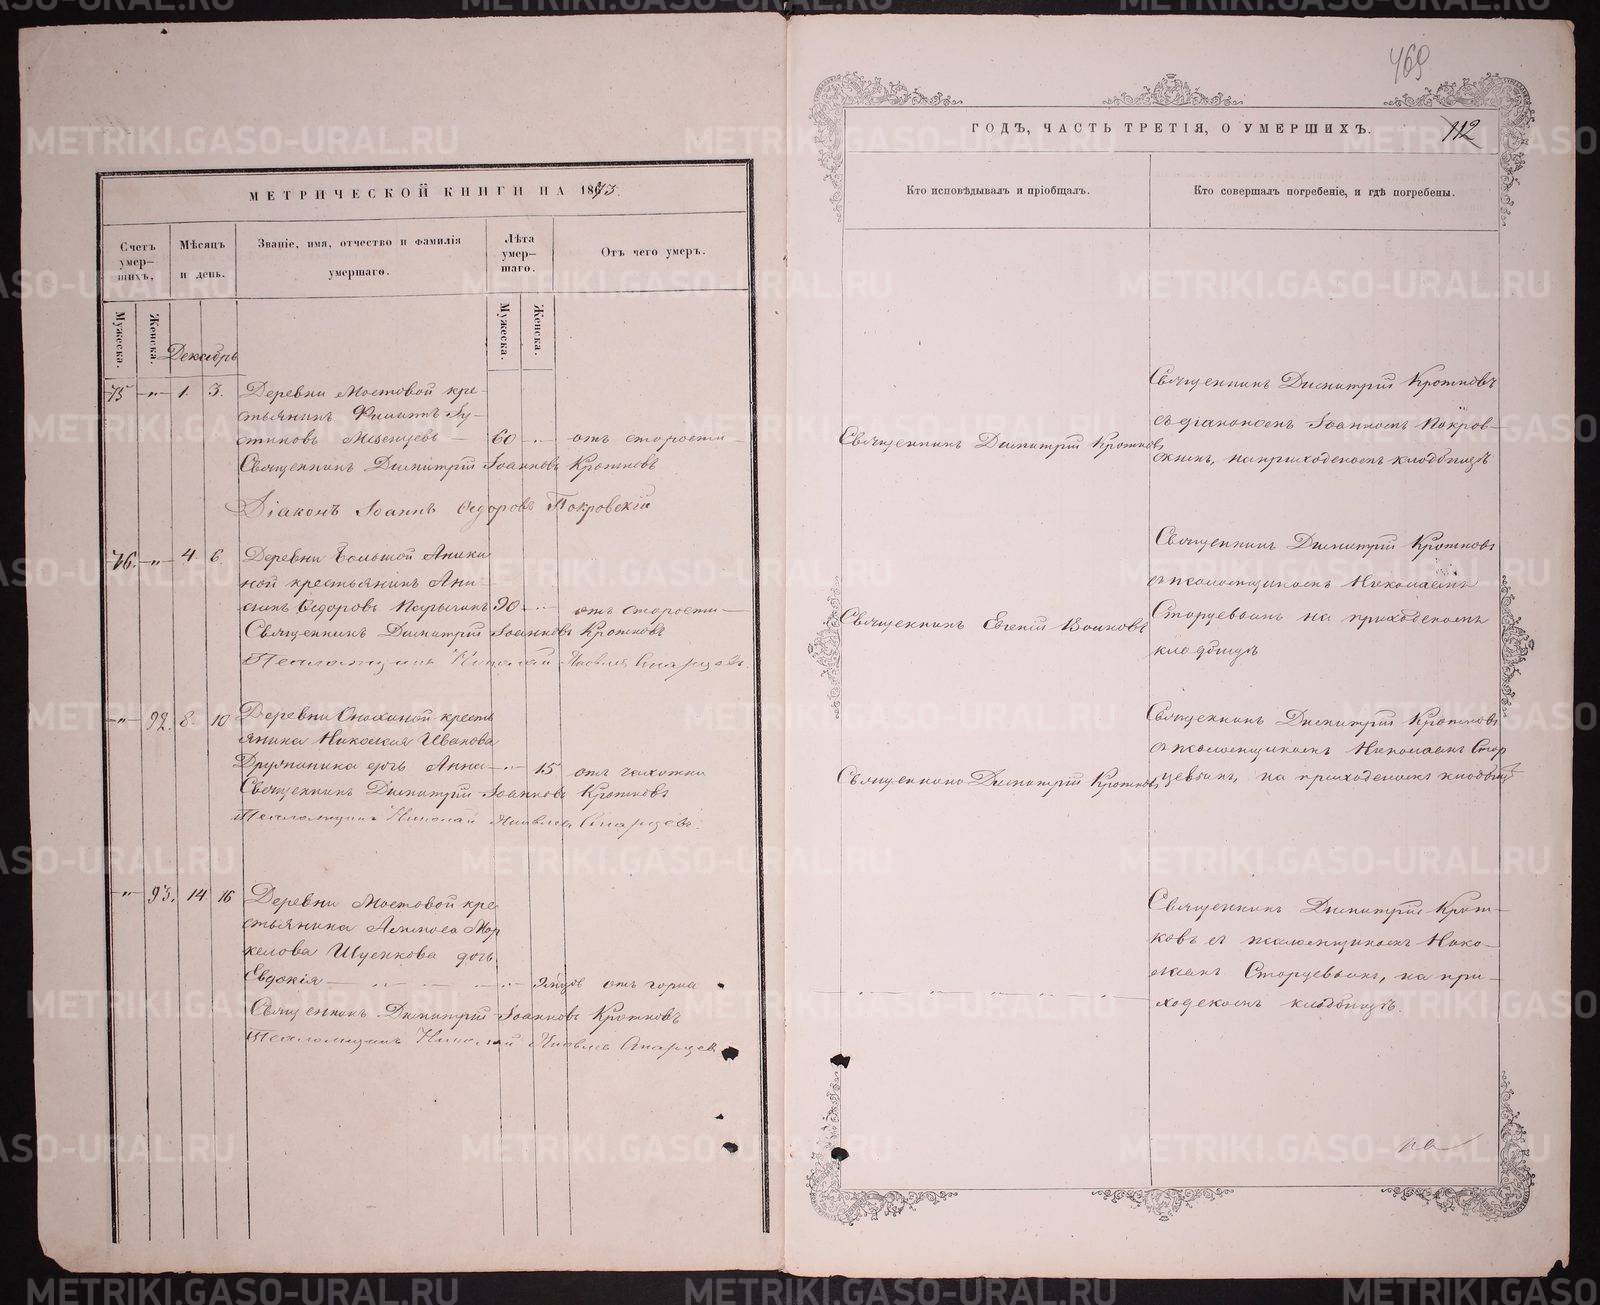 МЕТРИЧЕСКОЙ КНИГИ НА 1873.
Счетъ умер-шихъ.
Мѣсяцъ и день.
Званіе, имя, отчество и фамилія умершаго.
Лѣта умер-шаго.
Отъ чего умеръ.
Мужеска.
Женска.
Мужеска.
Женска.
Декабрь
75 " 1. 3. Деревни Мостовой кре-
стьянинъ Филатъ Лу-
60 " отъ старости
Священникъ Димитрій Іоанновъ Кротковъ
Діаконъ Іоаннъ Ѳедоровъ Покровскій
76. " 4. 6. Деревни Большой Аники
ной крестьянинъ Они-
симъ Ѳедоровъ 90 " отъ старости
Священникъ Димитрій Іоанновъ Кротковъ
Псаломщикъ Николай Яковлевъ Старцевъ.
" 92. 8. 10 Деревни крестъ
янина Николая Иванова
дочь Анна " 15 отъ чахотки
Священникъ Димитрій Іоанновъ Кротковъ
Псаломщикъ Николай Яковлевъ Старцевъ.
" 93. 14 16 Деревни Мостовой кре
стьянина Мар
келова дочь
Евдокія " отъ горла
Священникъ Димитрій Іоанновъ Кротковъ
Псаломщикъ Николай Яковлевъ Старцевъ
469
ГОДЪ, ЧАСТЬ ТРЕТІЯ, О УМЕРШИХЪ.
112
Кто исповѣдывалъ и пріобщалъ.
Кто совершалъ погребеніе, и гдѣ погребены.
Священникъ Димитрій Кротковъ
Священникъ Димитрій Кротковъ
съ діакономъ Іоанномъ Покров-
скимъ, на приходскомъ кладбищѣ
Священникъ Евгеній
Священникъ Димитрій Кротковъ
съ псаломщикомъ Николаемъ
Старцевымъ на приходскомъ
кладбищѣ
Священникъ Димитрій Кротковъ
Священникъ Димитрій Кротковъ
съ псаломщикомъ Николаемъ Стар
цевымъ, на приходскомъ кладбищѣ
Священникъ Димитрій Крот-
ковъ съ псаломщикомъ Нико-
лаемъ Старцевымъ, на при-
ходскомъ кладбищѣ.
METRIKI.GASO-URAL.RU